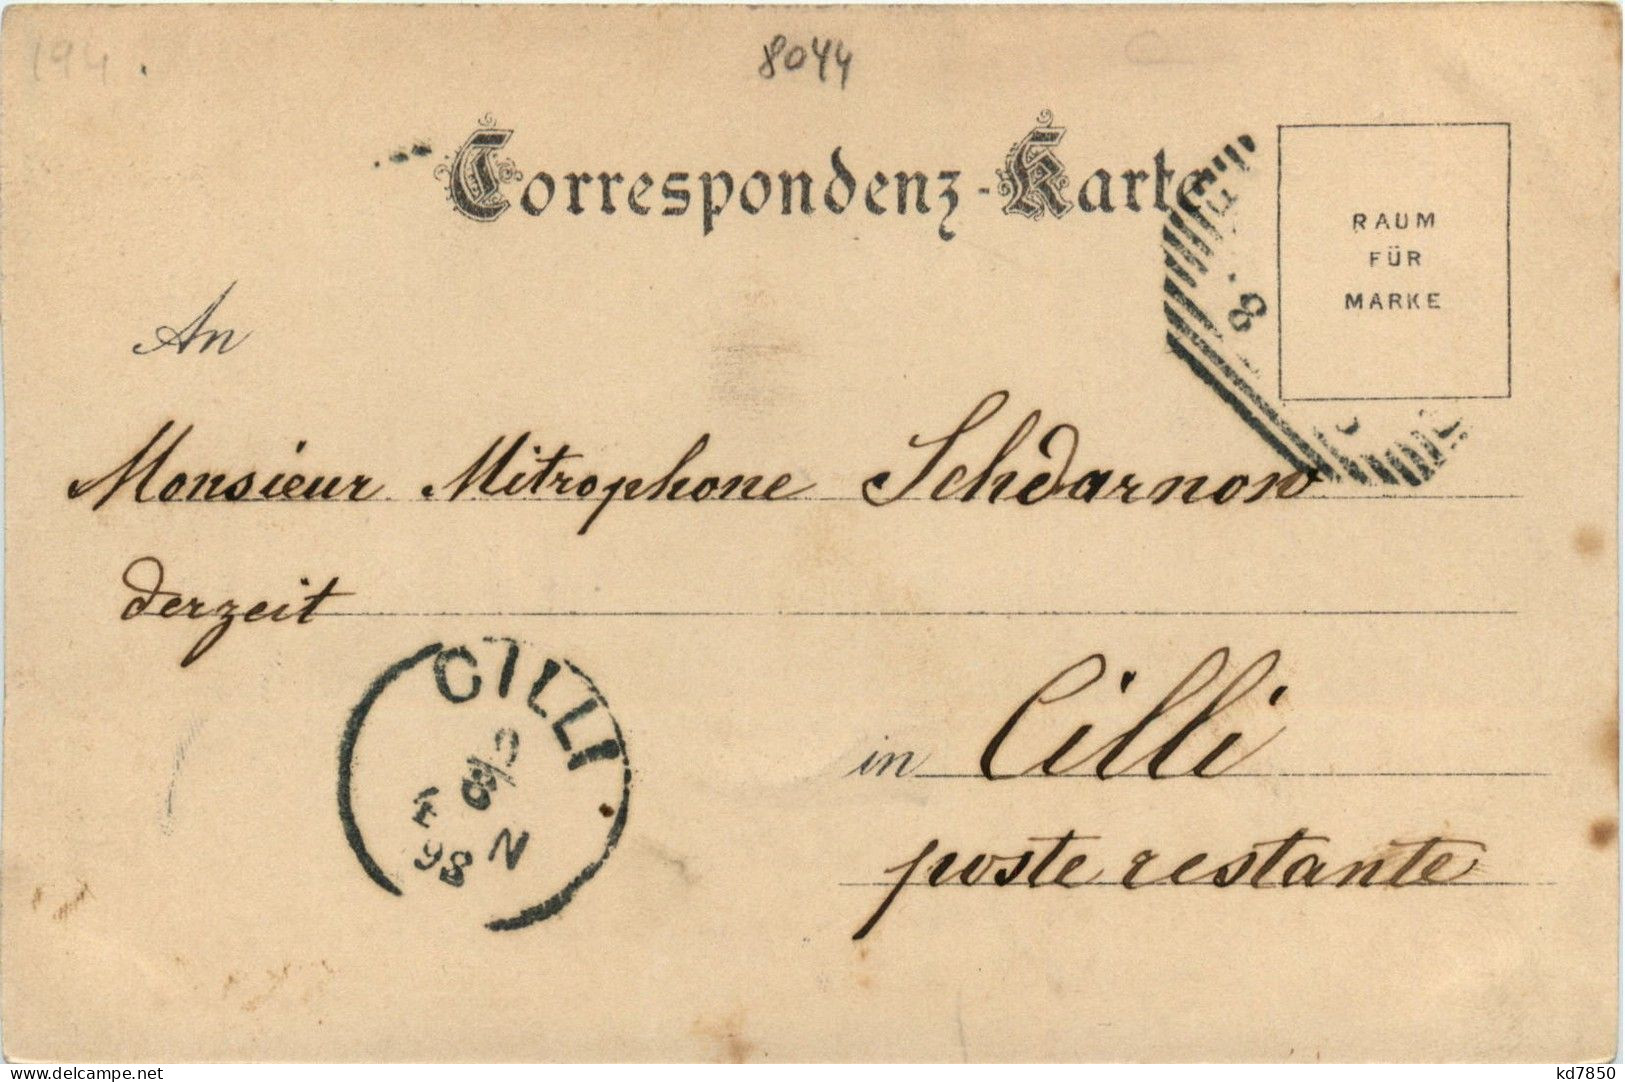 194.
8044
Correspondenz-Karte
RAUM
FÜR
MARKE
An
Monsieur Mitrophone Schdarnow
derzeit
CILLI
98 N
in Cilli
poste restante
delcampe.net
kd7850